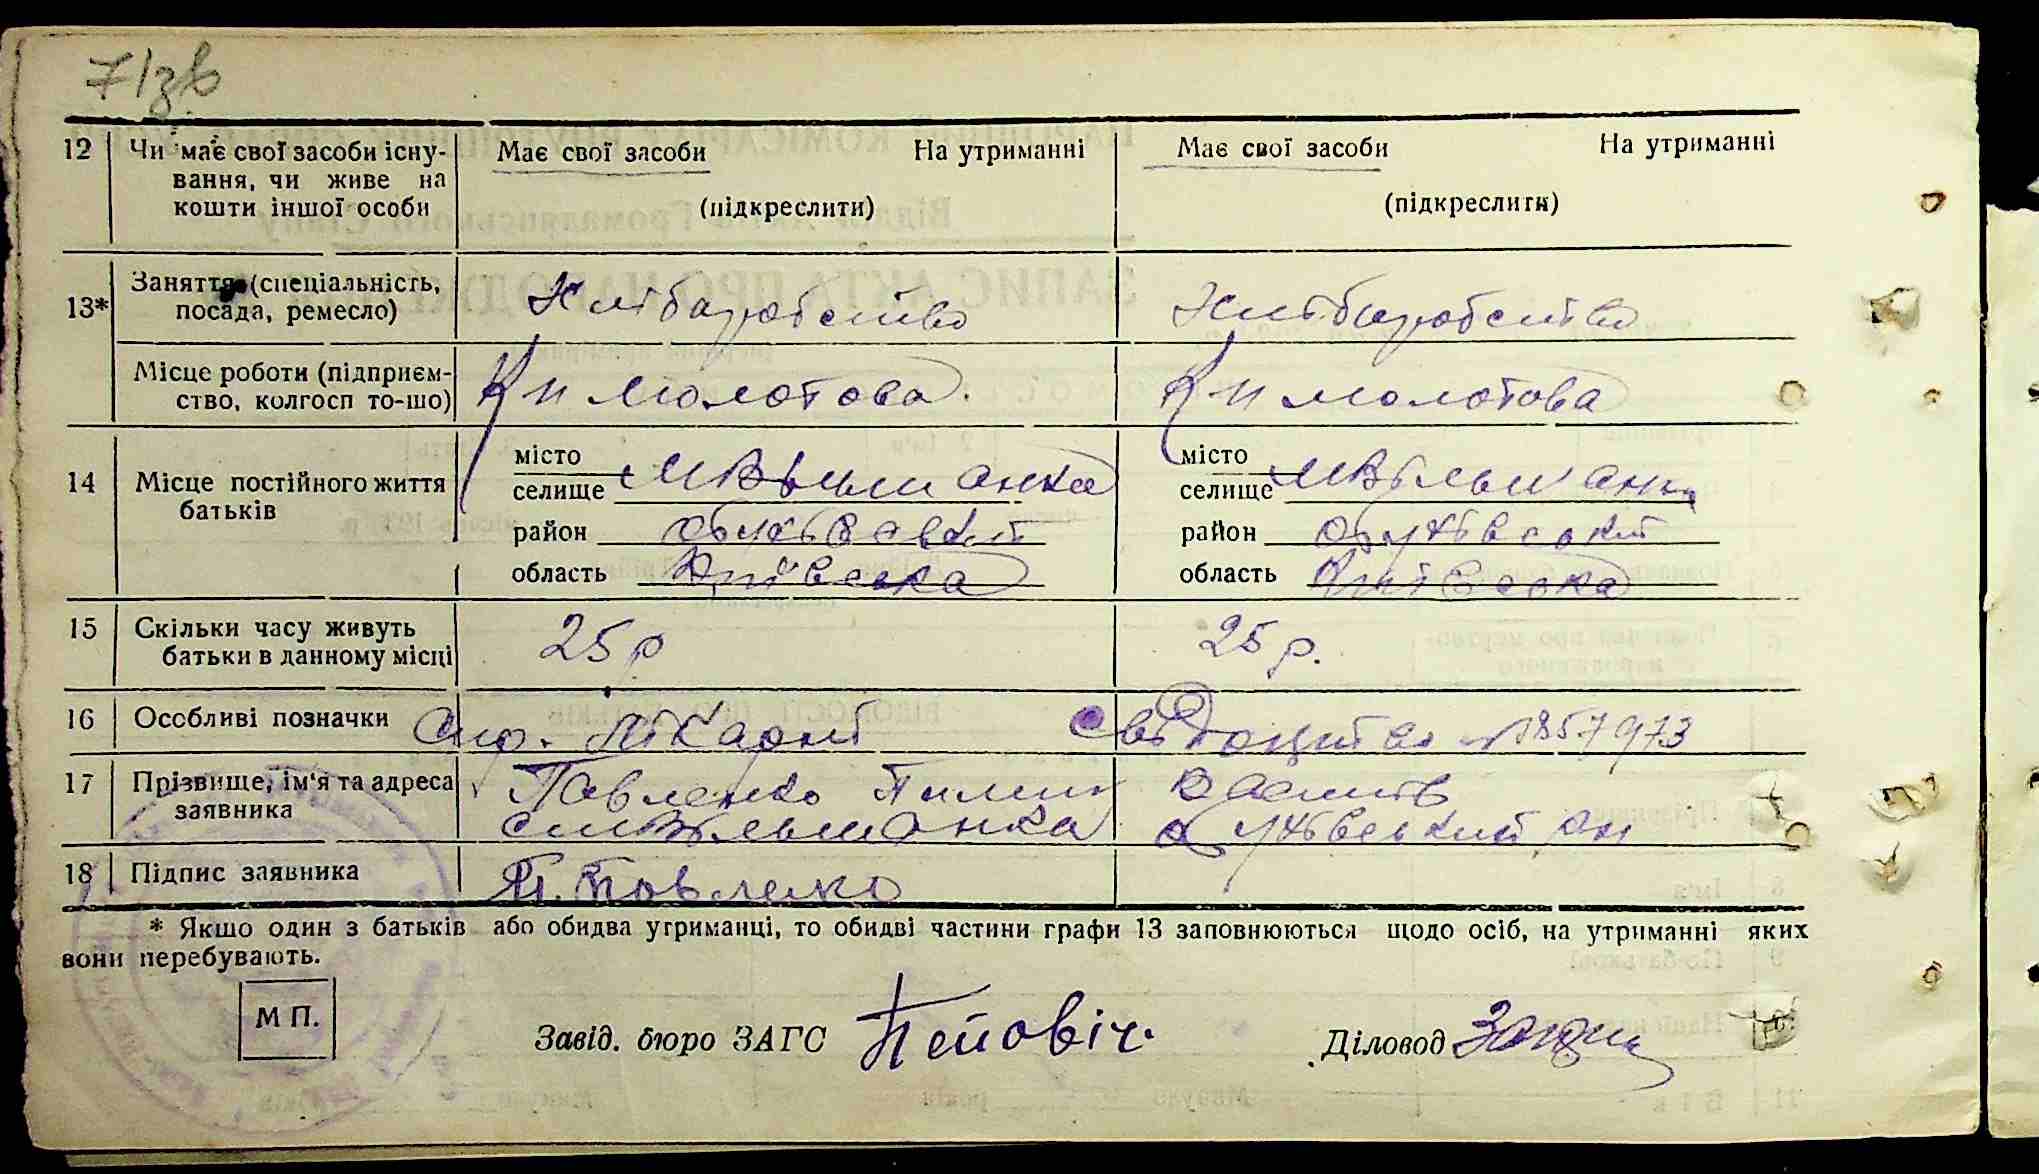 7/зв
12 Чи має свої засоби існу- Має свої засоби На утриманні Має свої засоби На утриманні
вання, чи живе на
кошти іншої особи (підкреслити) (підкреслити)
13* Заняття (спеціальність, Хлібаробство Хлібаробство
посада, ремесло)
Місце роботи (підприєм- К н Молотова. К н Молотова
ство, колгосп то-що)
місто місто
14 Місце постійного життя селище Вільшанка селище Вільшанка
батьків район Обухівський район Обухівський
область Київська область Київська
15 Скільки часу живуть 25 р 25 р.
батьки в данному місці
16 Особливі позначки Свідоцтво № 857973
17 Прізвище, ім'я та адреса Павленко Пилип
заявника Вільшанка Обухівський рн
18 Підпис заявника П. Павленко
* Якшо один з батьків або обидва утриманці, то обидві частини графи 13 заповнюються щодо осіб, на утриманні яких
вони перебувають.
М П.
Завід. бюро ЗАГС Діловод